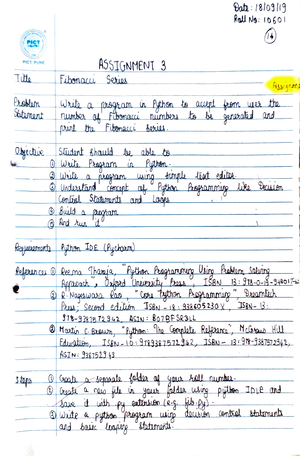 Date: 18/09/19
Roll No: 10601
PICT
PICT, PUNE
ASSIGNMENT 3
Title Fibonacci Series
Problem Write a program in Python to accept from user the
Statement number of Fibonacci numbers to be generated and
print the Fibonacci series.
Objective Student should be able to
① Write Program in Python.
② Write a program using simple text editor
③ Understand concept of Python Programming like Decision
Control Statements and Loops
④ Build a program
⑤ And run it
Requirements Python IDE (Pycharm)
References ① Reema Thareja, "Python Programming Using Problem Solving
Approach", Oxford University Press, ISBN 13:
② R. Nageswara Rao, "Core Python Programming", Dreamtech
Press; Second edition ISBN-10: ISBN-13:
ASIN:
③ Martin C. Brown, "Python: The Complete Reference", McGraw Hill
Education, ISBN-10: ISBN-13:
ASIN:
Steps ① Create a separate folder of your roll number.
② Create a new file in your folder using python IDLE and
save it with py extension (e.g. fib.py).
③ Write a python program using decision control statements
and basic looping statements.